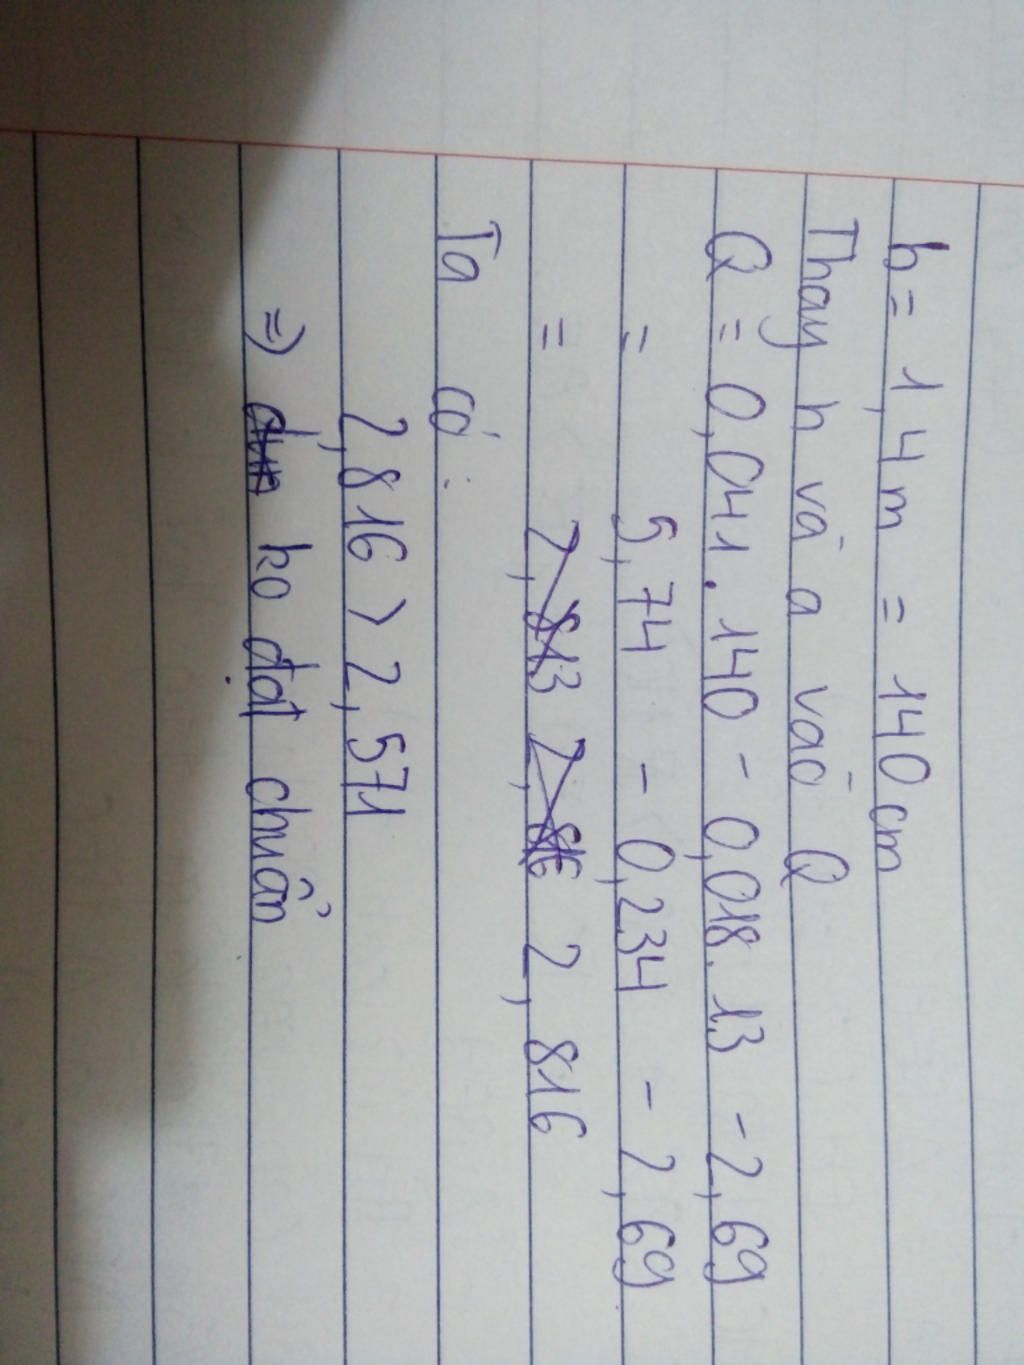 h = 1,4 m = 140 cm
Thay h và a vào Q
Q = 0,041 . 140 - 0,018 . 13 - 2,69
= 5,74 - 0,234 - 2,69
= 2,816
Ta có :
2,816 > 2,571
=> ko đạt chuẩn